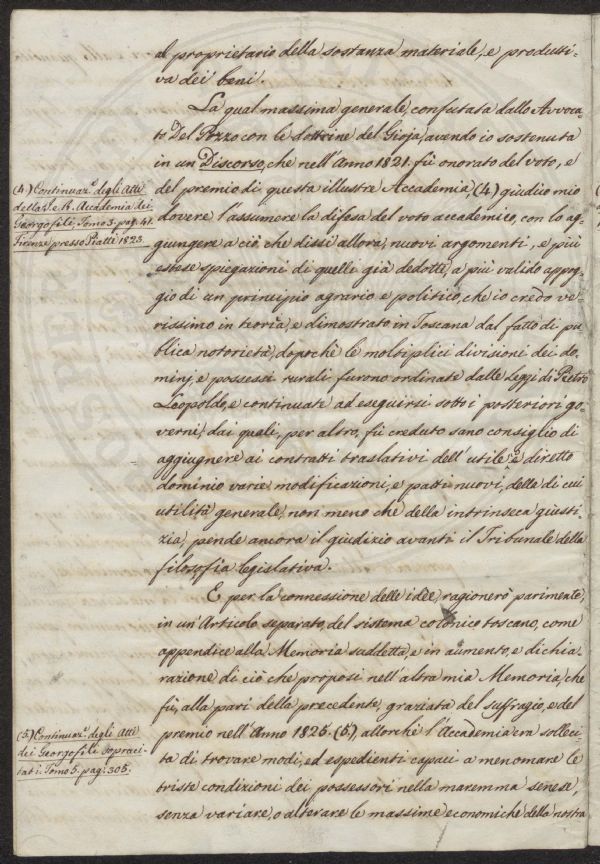 al proprietario della sostanza materiale, e produtti-
va dei beni.
La qual massima generale, confutata dallo Avvoca-
to Del Pozzo con le dottrine del Gioja, avendo io sostenuta
in un Discorso, che nell'Anno 1821. fù onorato del voto, e
del premio di questa illustre Accademia, (4) giudico mio
dovere l'assumere la difesa del voto accademico, con lo ag-
giungere a ciò, che dissi allora, nuovi argomenti, e più
estese spiegazioni di quelli già dedotti, a più valido appog-
gio di un principio agrario e politico, che io credo ve-
rissimo in teoria, e dimostrato in Toscana dal fatto di pu-
blica notorietà, dopochè le moltiplici divisioni dei do-
minj, e possessi rurali furono ordinate dalle Leggi di Pietro
Leopoldo, e continuate ad eseguirsi sotto i posteriori go-
verni, dai quali, per altro, fù creduto sano consiglio di
aggiugnere ai contratti traslativi dell'utile, e diretto
dominio varie modificazioni, e patti nuovi, delle di cui
utilità generale, non meno che della intrinseca giusti-
zia, pende ancora il giudizio avanti il Tribunale della
filosofia legislativa.
E per la connessione delle idèe, ragionerò parimente,
in un'Articolo separato, del sistema colonico toscano, come
appendice alla Memoria suddetta, e in aumento, e dichia-
razione di ciò che proposi nell'altra mia Memoria, che
fù, alla pari della precedente, graziata del suffragio, e del
premio nell'Anno 1825. (5), allorchè l'Accademia era solleci-
ta di trovare modi, ed espedienti capaci a menomare le
triste condizioni dei possessori nella maremma senese,
senza variare, o alterare le massime economiche della nostra
(4) Continuaz.e degli Atti
della I. e R. Accademia dei
Georgofili, Tomo 3. pag. 41.
Firenze presso Piatti 1823.
(5) Continuaz.e degli Atti
dei Georgofili sopraci-
tati: Tomo 5. pag: 305.